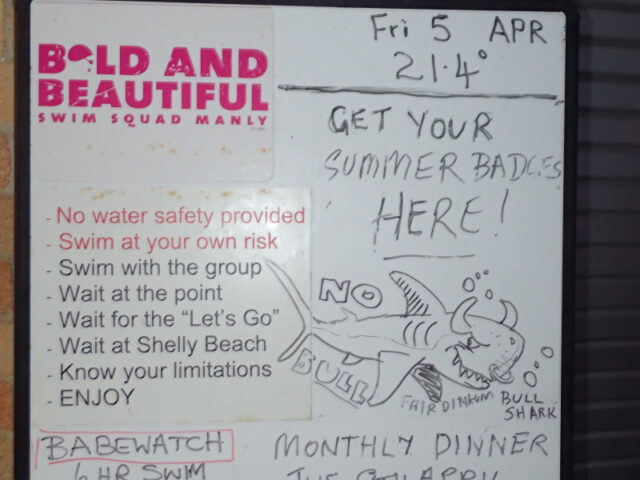 BOLD AND
BEAUTIFUL
SWIM SQUAD MANLY
Fri 5 APR
21.4°
GET YOUR
SUMMER BADGES
HERE!
- No water safety provided
- Swim at your own risk
- Swim with the group
- Wait at the point
- Wait for the “Let's Go”
- Wait at Shelly Beach
- Know your limitations
- ENJOY
NO
BULL
FAIR DINKUM
BULL
SHARK
BABEWATCH
6 HR SWIM
MONTHLY DINNER